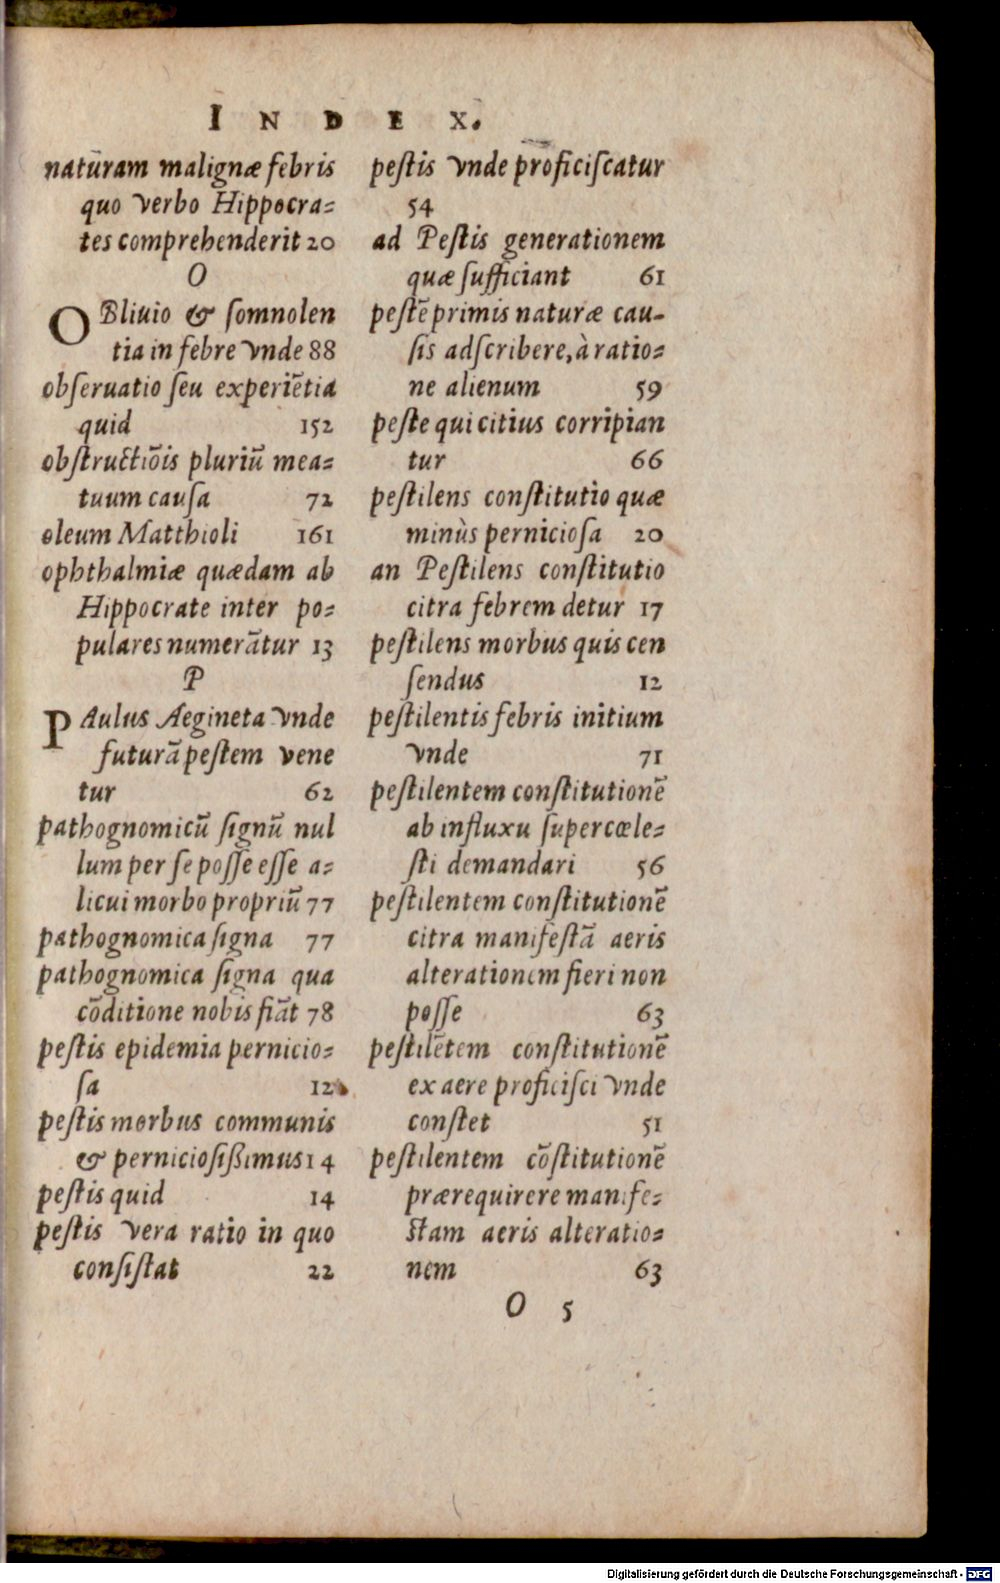 INDEX.
natūram malignæ febris
quo verbo Hippocra=
tes comprehenderit 20
O
OBliuio & somnolen
tia in febre vnde 88
obseruatio seu experiētia
quid 152
obstructiōis pluriū mea=
tuum causa 72
oleum Matthioli 161
ophthalmiæ quædam ab
Hippocrate inter po=
pulares numerātur 13
P
PAulus Aegineta vnde
futurā pestem vene
tur 62
pathognomicū signū nul
lum per se posse esse a=
licui morbo propriū 77
pathognomica signa 77
pathognomica signa qua
cōditione nobis fiāt 78
pestis epidemia pernicio=
sa 12
pestis morbus communis
& perniciosißimus 14
pestis quid 14
pestis vera ratio in quo
consistat 22
pestis vnde proficiscatur
54
ad Pestis generationem
quæ sufficiant 61
pestē primis naturæ cau-
sis adscribere, à ratio=
ne alienum 59
peste qui citius corripian
tur 66
pestilens constitutio quæ
minùs perniciosa 20
an Pestilens constitutio
citra febrem detur 17
pestilens morbus quis cen
sendus 12
pestilentis febris initium
vnde 71
pestilentem constitutionē
ab influxu supercœle=
sti demandari 56
pestilentem constitutionē
citra manifestā aeris
alterationem fieri non
posse 63
pestilētem constitutionē
ex aere proficisci vnde
constet 51
pestilentem cōstitutionē
prærequirere manife=
stam aeris alteratio=
nem 63
O 5
Digitalisierung gefördert durch die Deutsche Forschungsgemeinschaft - DFG